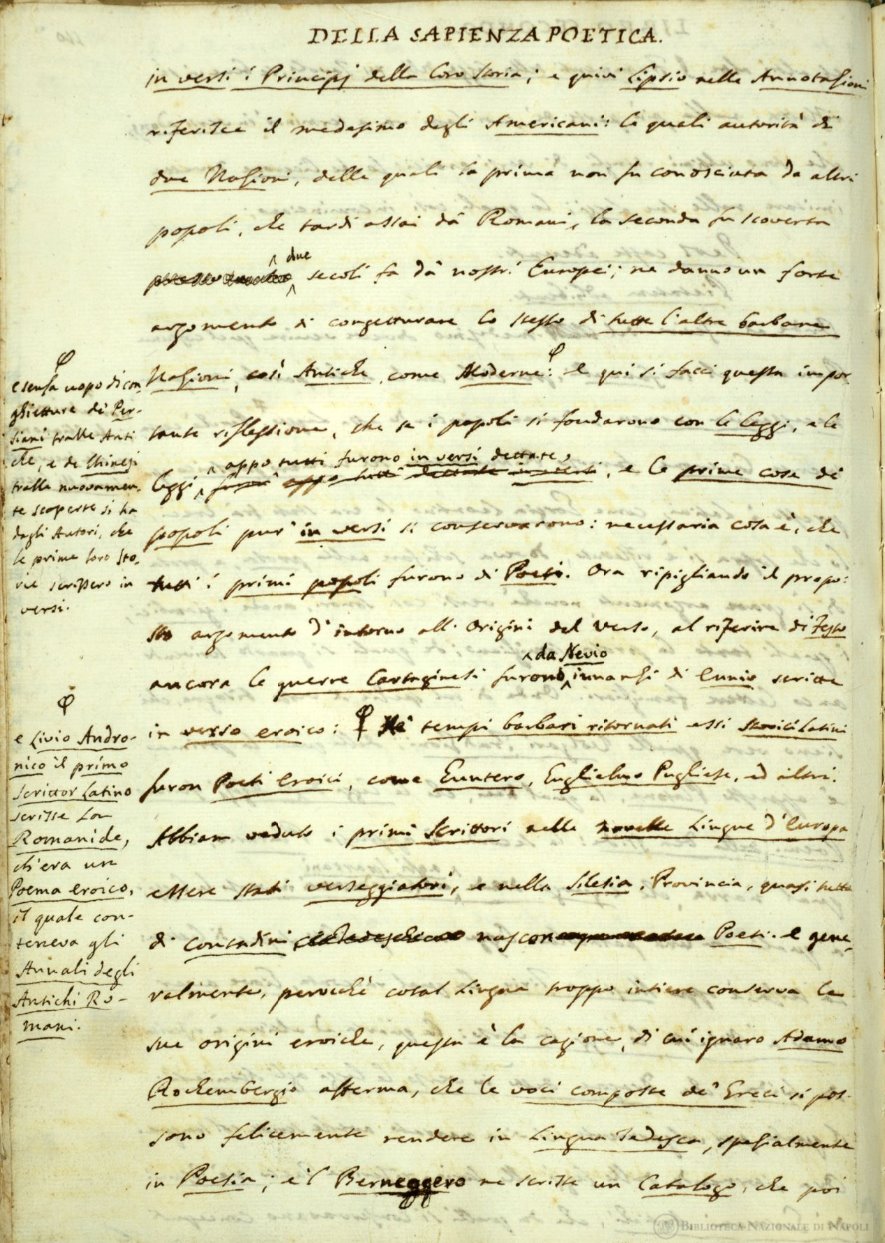 DELLA SAPIENZA POETICA.
in versi i Principj della loro storia; e quivi Lipsio nelle Annotazioni
riferisce il medesimo degli Americani: le quali autorità di
due Nazioni, delle quali la prima non fu conosciuta da altri
popoli, che tardi assai da' Romani, la seconda fu scoverta
due
secoli fa da' nostri Europei; ne danno un forte
argomento di congetturare lo stesso di tutte l'altre barbare
Nazioni, così Antiche, come Moderne: φ e qui si facci questa impor
tante riflessione, che se i popoli si fondarono con le leggi, e le
appo tutti furono in versi dettate,
leggi furon appo tutti dettate in versi, e le prime cose de'
popoli pur' in versi si conservarono: necessaria cosa è, che
tutti i primi popoli furono di Poeti. Ora ripigliando il propo:
sto argomento d'intorno all' Origini del verso, al riferire di Festo
da Nevio
ancora le guerre Cartaginesi furono innanzi di Ennio scritte
in verso eroico: φ Ne' tempi barbari ritornati essi Storici Latini
furon Poeti Eroici, come Guntero, Guglielmo Pugliese, ed altri.
Abbiam veduto i primi Scrittori nelle novelle Lingue d'Europa
essere stati verseggiatori, e nella Slesia, Provincia, quasi tutta
di contadini nascon Poeti. e gene,
ralmente, perocchè cotal Lingua troppo intiere conserva le
sue origini eroiche, questa è la cagione, di cui ignaro Adamo
Rochembergio afferma, che le voci composte de' Greci si pos-
sono felicemente rendere in Lingua Tedesca, spezialmente
in Poesia; e 'l Berneggero ne scrisse un Catalogo, che poi
φ
e senza uopo di con
ghietture de' Per-
siani tralle Anti
che, e de' Chinesi
tralle nuovamen-
te scoperte si ha
dagli Autori, che
le prime loro Sto-
rie scrissero in
versi.
φ
e Livio Andro-
nico il primo
Scrittor Latino
scrisse la
Romanide,
ch'era un
Poema eroico,
il quale con-
teneva gli
Annali degli
Antichi Ro-
mani.
BIBLIOTECA NAZIONALE DI NAPOLI